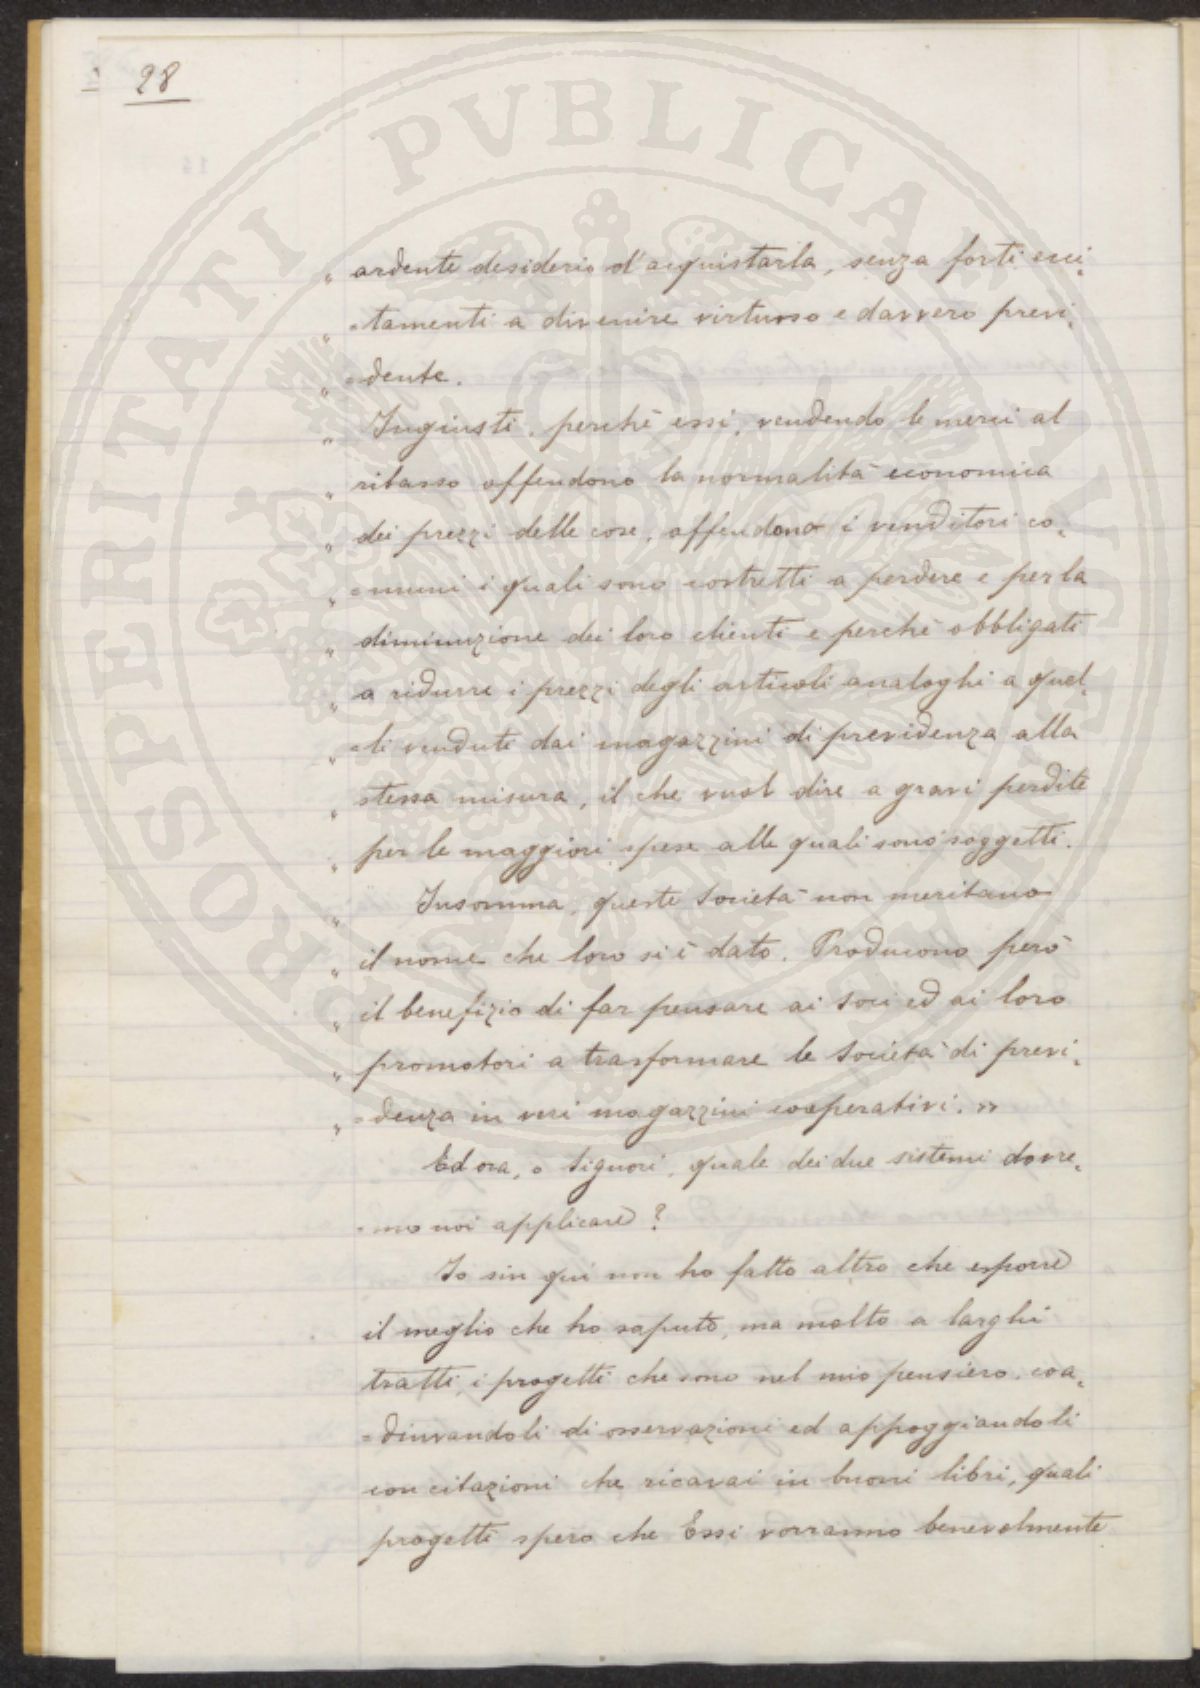 28
„ ardente desiderio d'acquistarla, senza forti ecci„
„ =tamenti a divenire virtuoso e davvero previ„
„ =dente.
„ Ingiusti, perchè essi, vendendo le merci al
„ ribasso offendono la normalità economica
„ dei prezzi delle cose, offendono i venditori co„
„ =muni i quali sono costretti a perdere e per la
„ diminuzione dei loro clienti e perchè obbligati
„ a ridurre i prezzi degli articoli analoghi a quel„
„ =li venduti dai magazzini di previdenza alla
„ stessa misura, il che vuol dire a gravi perdite
„ per le maggiori spese alle quali sono soggetti.
„ Insomma, queste Società non meritano
„ il nome che loro si è dato. Producono però
„ il benefizio di far pensare ai soci ed ai loro
„ promotori a trasformare le Società di previ„
„ =denza in veri magazzini cooperativi. »
Ed ora, o Signori, quale dei due sistemi dovre„
=mo noi applicare?
Io sin qui non ho fatto altro che esporre
il meglio che ho saputo, ma molto a larghi
tratti, i progetti che sono nel mio pensiero, coa„
=diuvandoli di osservazioni ed appoggiandoli
con citazioni che ricavai in buoni libri, quali
progetti spero che Essi vorranno benevolmente
PROSPERITATI PVBLICAE AVGENDAE